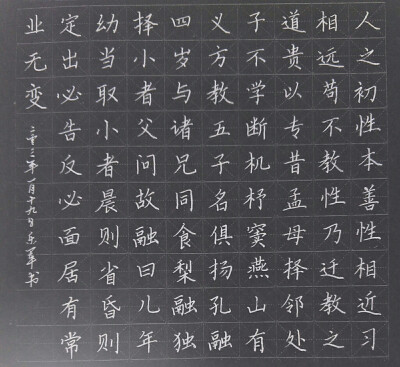 人之初性本善性相近习
相远苟不教性乃迁教之
道贵以专昔孟母择邻处
子不学断机杼窦燕山有
义方教五子名俱扬孔融
四岁与诸兄同食梨融独
择小者父问故融曰儿年
幼当取小者晨则省昏则
定出必告反必面居有常
业无变
年一月十九日 书